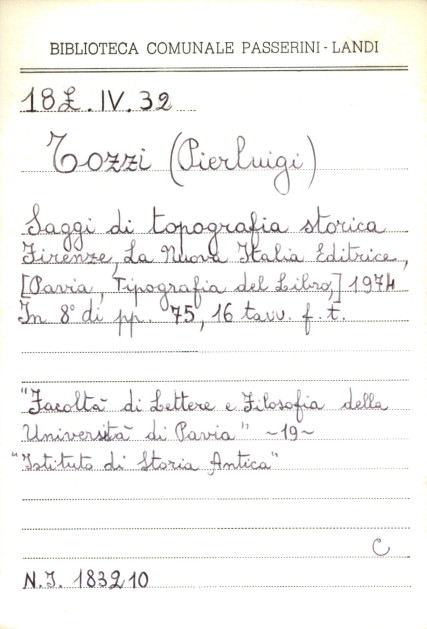 BIBLIOTECA COMUNALE PASSERINI - LANDI
18£.IV.32
Tozzi (Pierluigi)
Saggi di topografia storica
Firenze, La Nuova Italia Editrice,
[Pavia, Tipografia del Libro,] 1974
In 8° di pp. 75, 16 tavv. f. t.
"Facoltà di Lettere e Filosofia della
Università di Pavia" ~19~
"Istituto di Storia Antica"
C
N.I. 183210